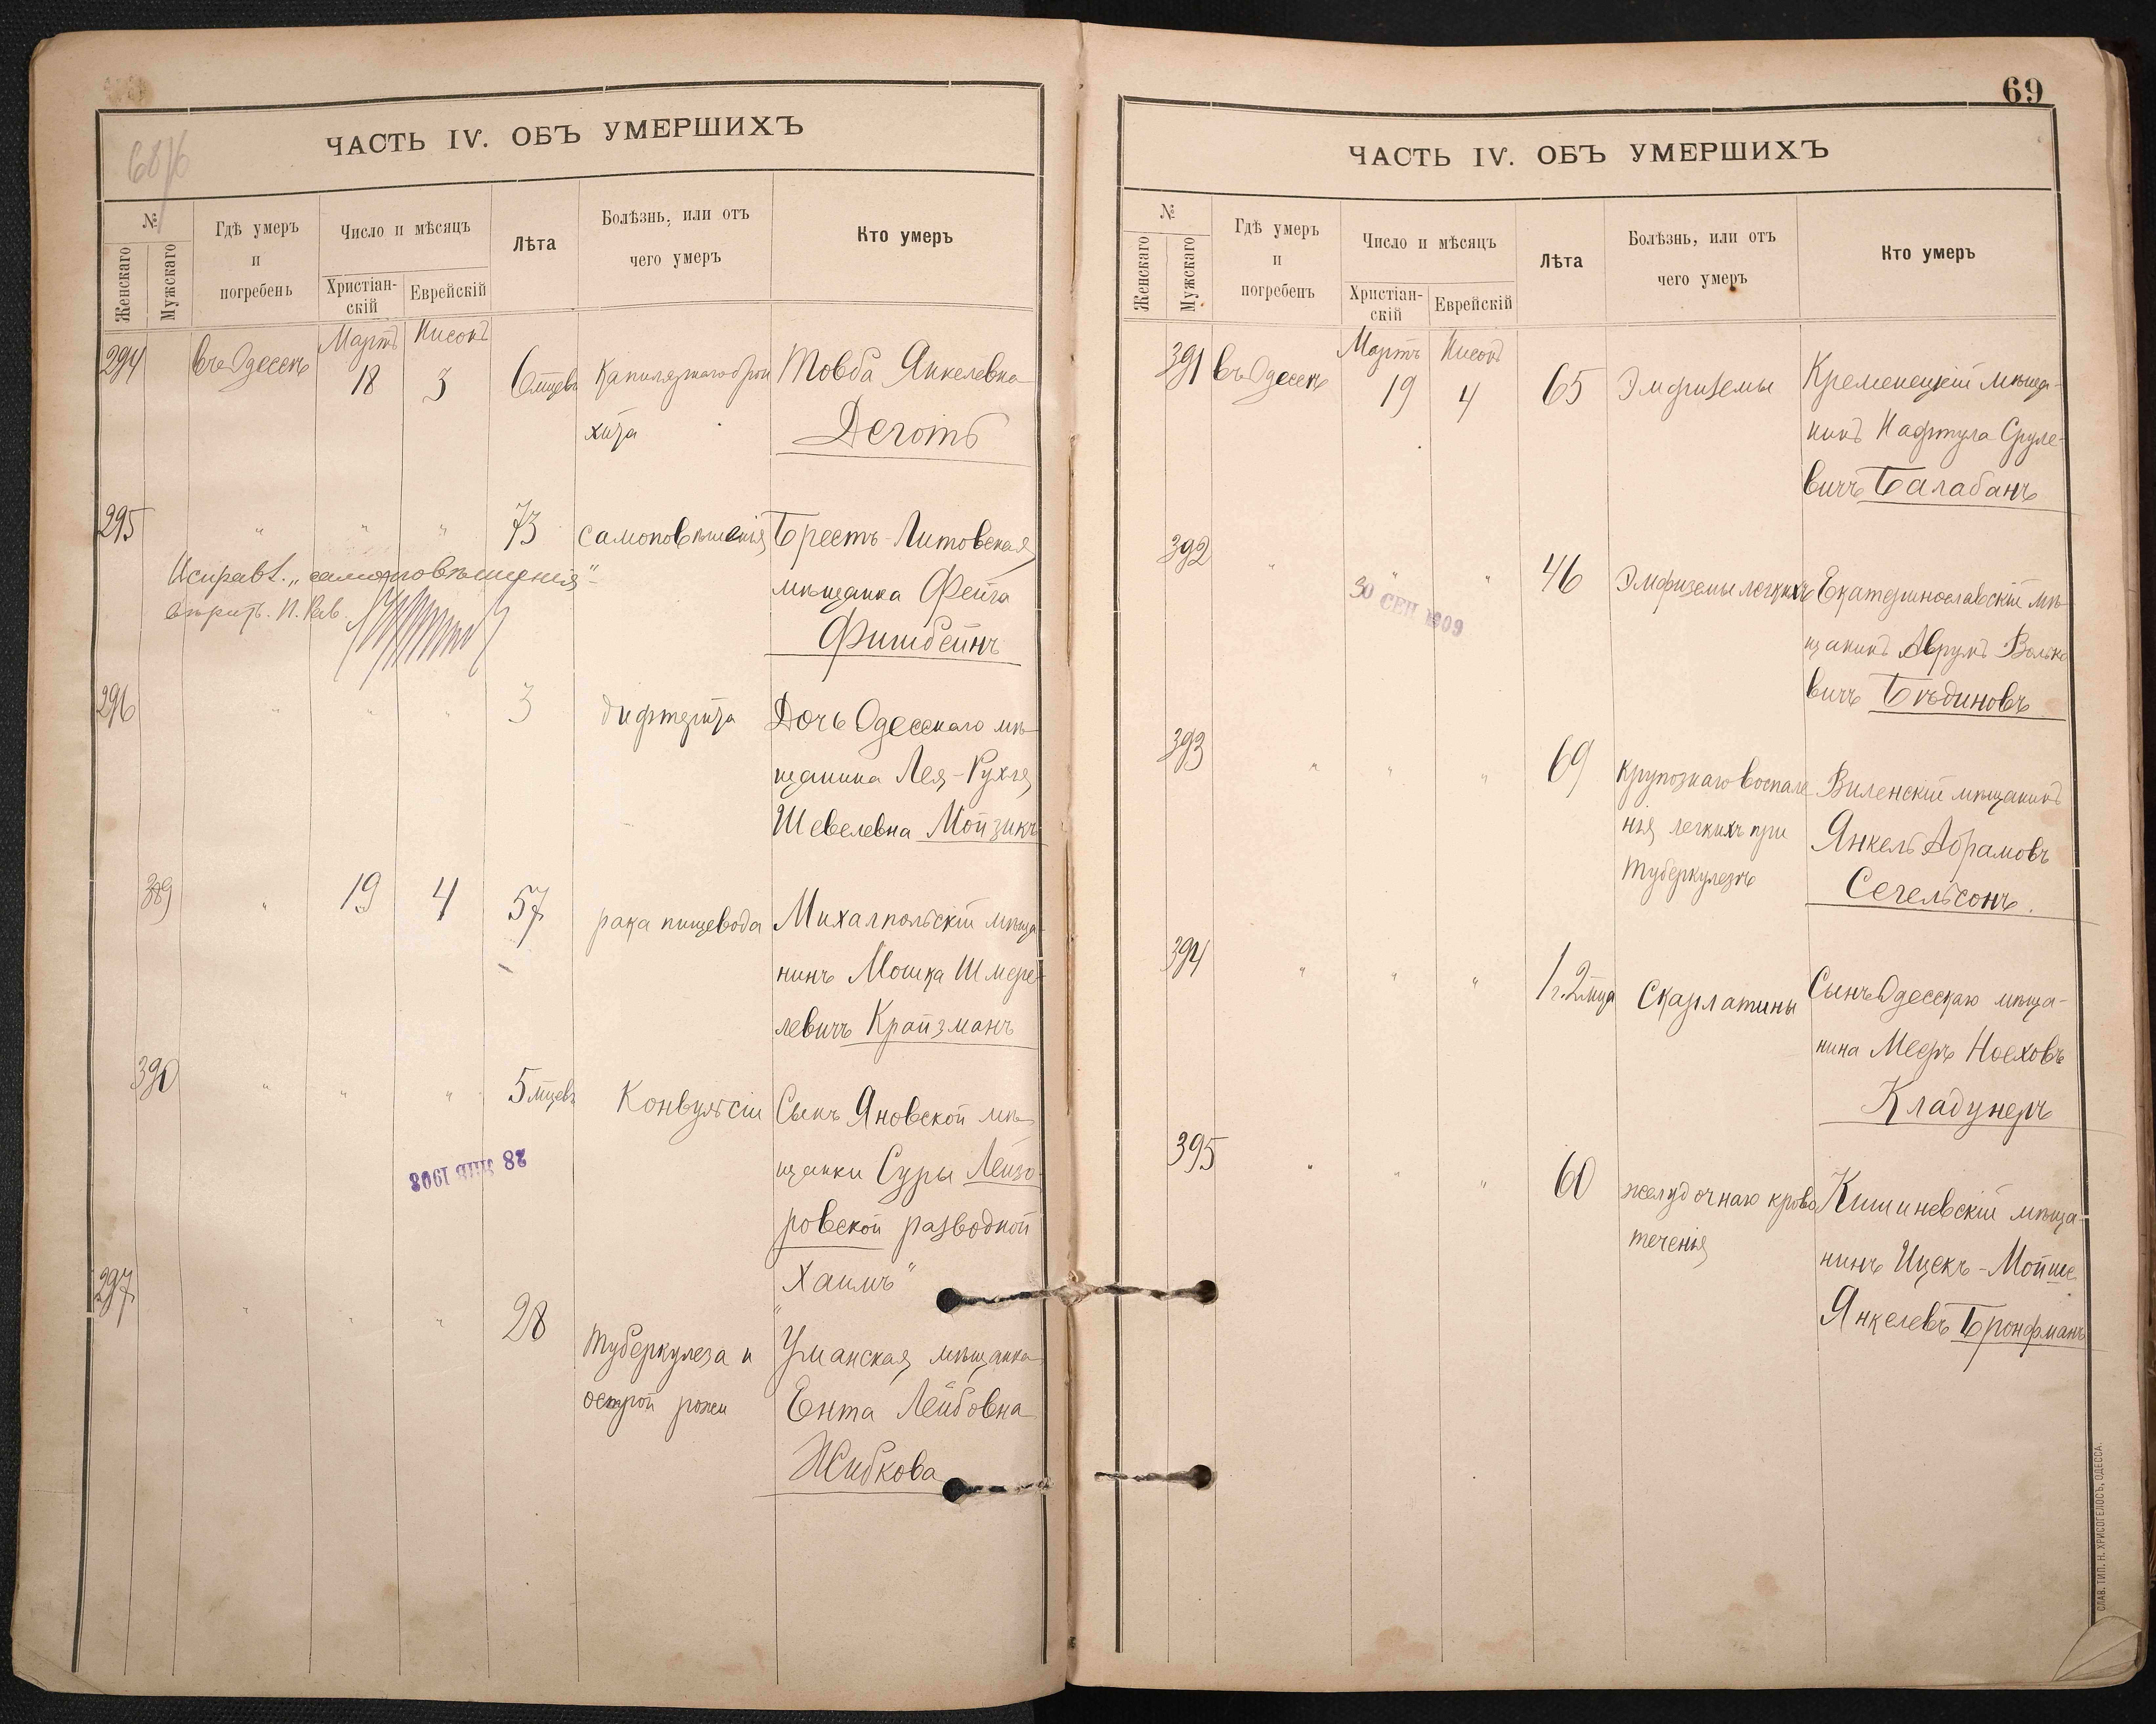 68/6
ЧАСТЬ IV. ОБЪ УМЕРШИХЪ
№
Женскаго
Мужскаго
Гдѣ умеръ
и
погребенъ
Число и мѣсяцъ
Христіан-
скій
Еврейскій
Лѣта
Болѣзнь, или отъ
чего умеръ
Кто умеръ
Мартъ Нисонъ
294 въ Одессѣ 18 3 6 мцевъ Капилярнаго брон Товба Янкелевна
хита Деготь
295 " " " 73 самоповѣшенія Брестъ-Литовская
Исправл. "самоповѣшенія"
мѣщанка Фейга
вѣритъ. И. Рав.
Фишбейнъ
296 " " " 3 дифтерита Дочь Одесскаго мѣ
щанина Лея-Рухля
Шевелевна Мойзикъ
389 " 19 4 57 рака пищевода Михалпольскій мѣща-
нинъ Мошка Шмере-
левичъ Крайзманъ
390 " " " 5 мцевъ Конвульсіи Сынъ Яновской мѣ
28 ЯНВ 1908
щанки Суры Лейзо-
ровской разводной
"Хаимъ"
297 " " " 28 Туберкулеза и Уманская мѣщанка
острой рожи Ента Лейбовна
Жибкова
69
ЧАСТЬ IV. ОБЪ УМЕРШИХЪ
№
Женскаго
Мужскаго
Гдѣ умеръ
и
погребенъ
Число и мѣсяцъ
Христіан-
скій
Еврейскій
Лѣта
Болѣзнь, или отъ
чего умеръ
Кто умеръ
Мартъ Нисонъ
391 въ Одессѣ 19 4 65 Эмфиземы Кременецкій мѣща-
нинъ Нафтула Сруле-
вичъ Балабанъ
392 " " " 46 Эмфиземы легкихъ Екатеринославскій мѣ-
30 СЕН 1909
щанинъ Аврумъ Волько
вичъ Бѣдиновъ
393 " " " 69 крупознаго воспале Виленскій мѣщанинъ
нія легкихъ при Янкель Абрамовъ
туберкулезѣ Сегельсонъ.
394 " " " 1 г. 2 мца Скарлатины Сынъ Одесскаго мѣща-
нина Мееръ Ноеховъ
Кладунеръ
395 " " " 60 желудочнаго крово Кишиневскій мѣща-
теченія нинъ Ицекъ-Мойше
Янкелевъ Бронфманъ
СЛАВ. ТИП. Н. ХРИСОГЕЛОСЪ, ОДЕССА.